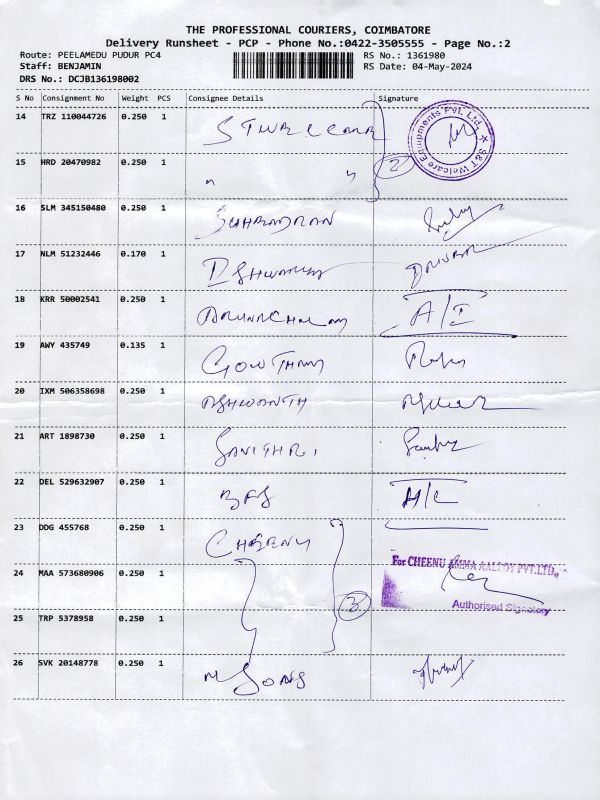 THE PROFESSIONAL COURIERS, COIMBATORE
Delivery Runsheet - PCP - Phone No.:0422-3505555 - Page No.:2
Route: PEELAMEDU PUDUR PC4
RS No.: 1361980
Staff: BENJAMIN
RS Date: 04-May-2024
DRS No.: DCJB136198002
S No Consignment No Weight PCS Consignee Details Signature
14 TRZ 110044726 0.250 1
S&T Welcare Equipments Pvt. Ltd. ★
15 HRD 20470982 0.250 1 " " 2
16 SLM 345150480 0.250 1
17 NLM 51232446 0.170 1
18 KRR 50002541 0.250 1 ARUNACHALAM
19 AWY 435749 0.135 1 GOWTHAM
20 IXM 506358698 0.250 1 ASHWANTH
21 ART 1898730 0.250 1 SAVITHRI
22 DEL 529632907 0.250 1
23 DDG 455768 0.250 1 CHEENU
24 MAA 573680906 0.250 1
For CHEENU AMMA AALLOY PVT.LTD.,
Authorised Signatory
25 TRP 5378958 0.250 1 3
26 SVK 20148778 0.250 1